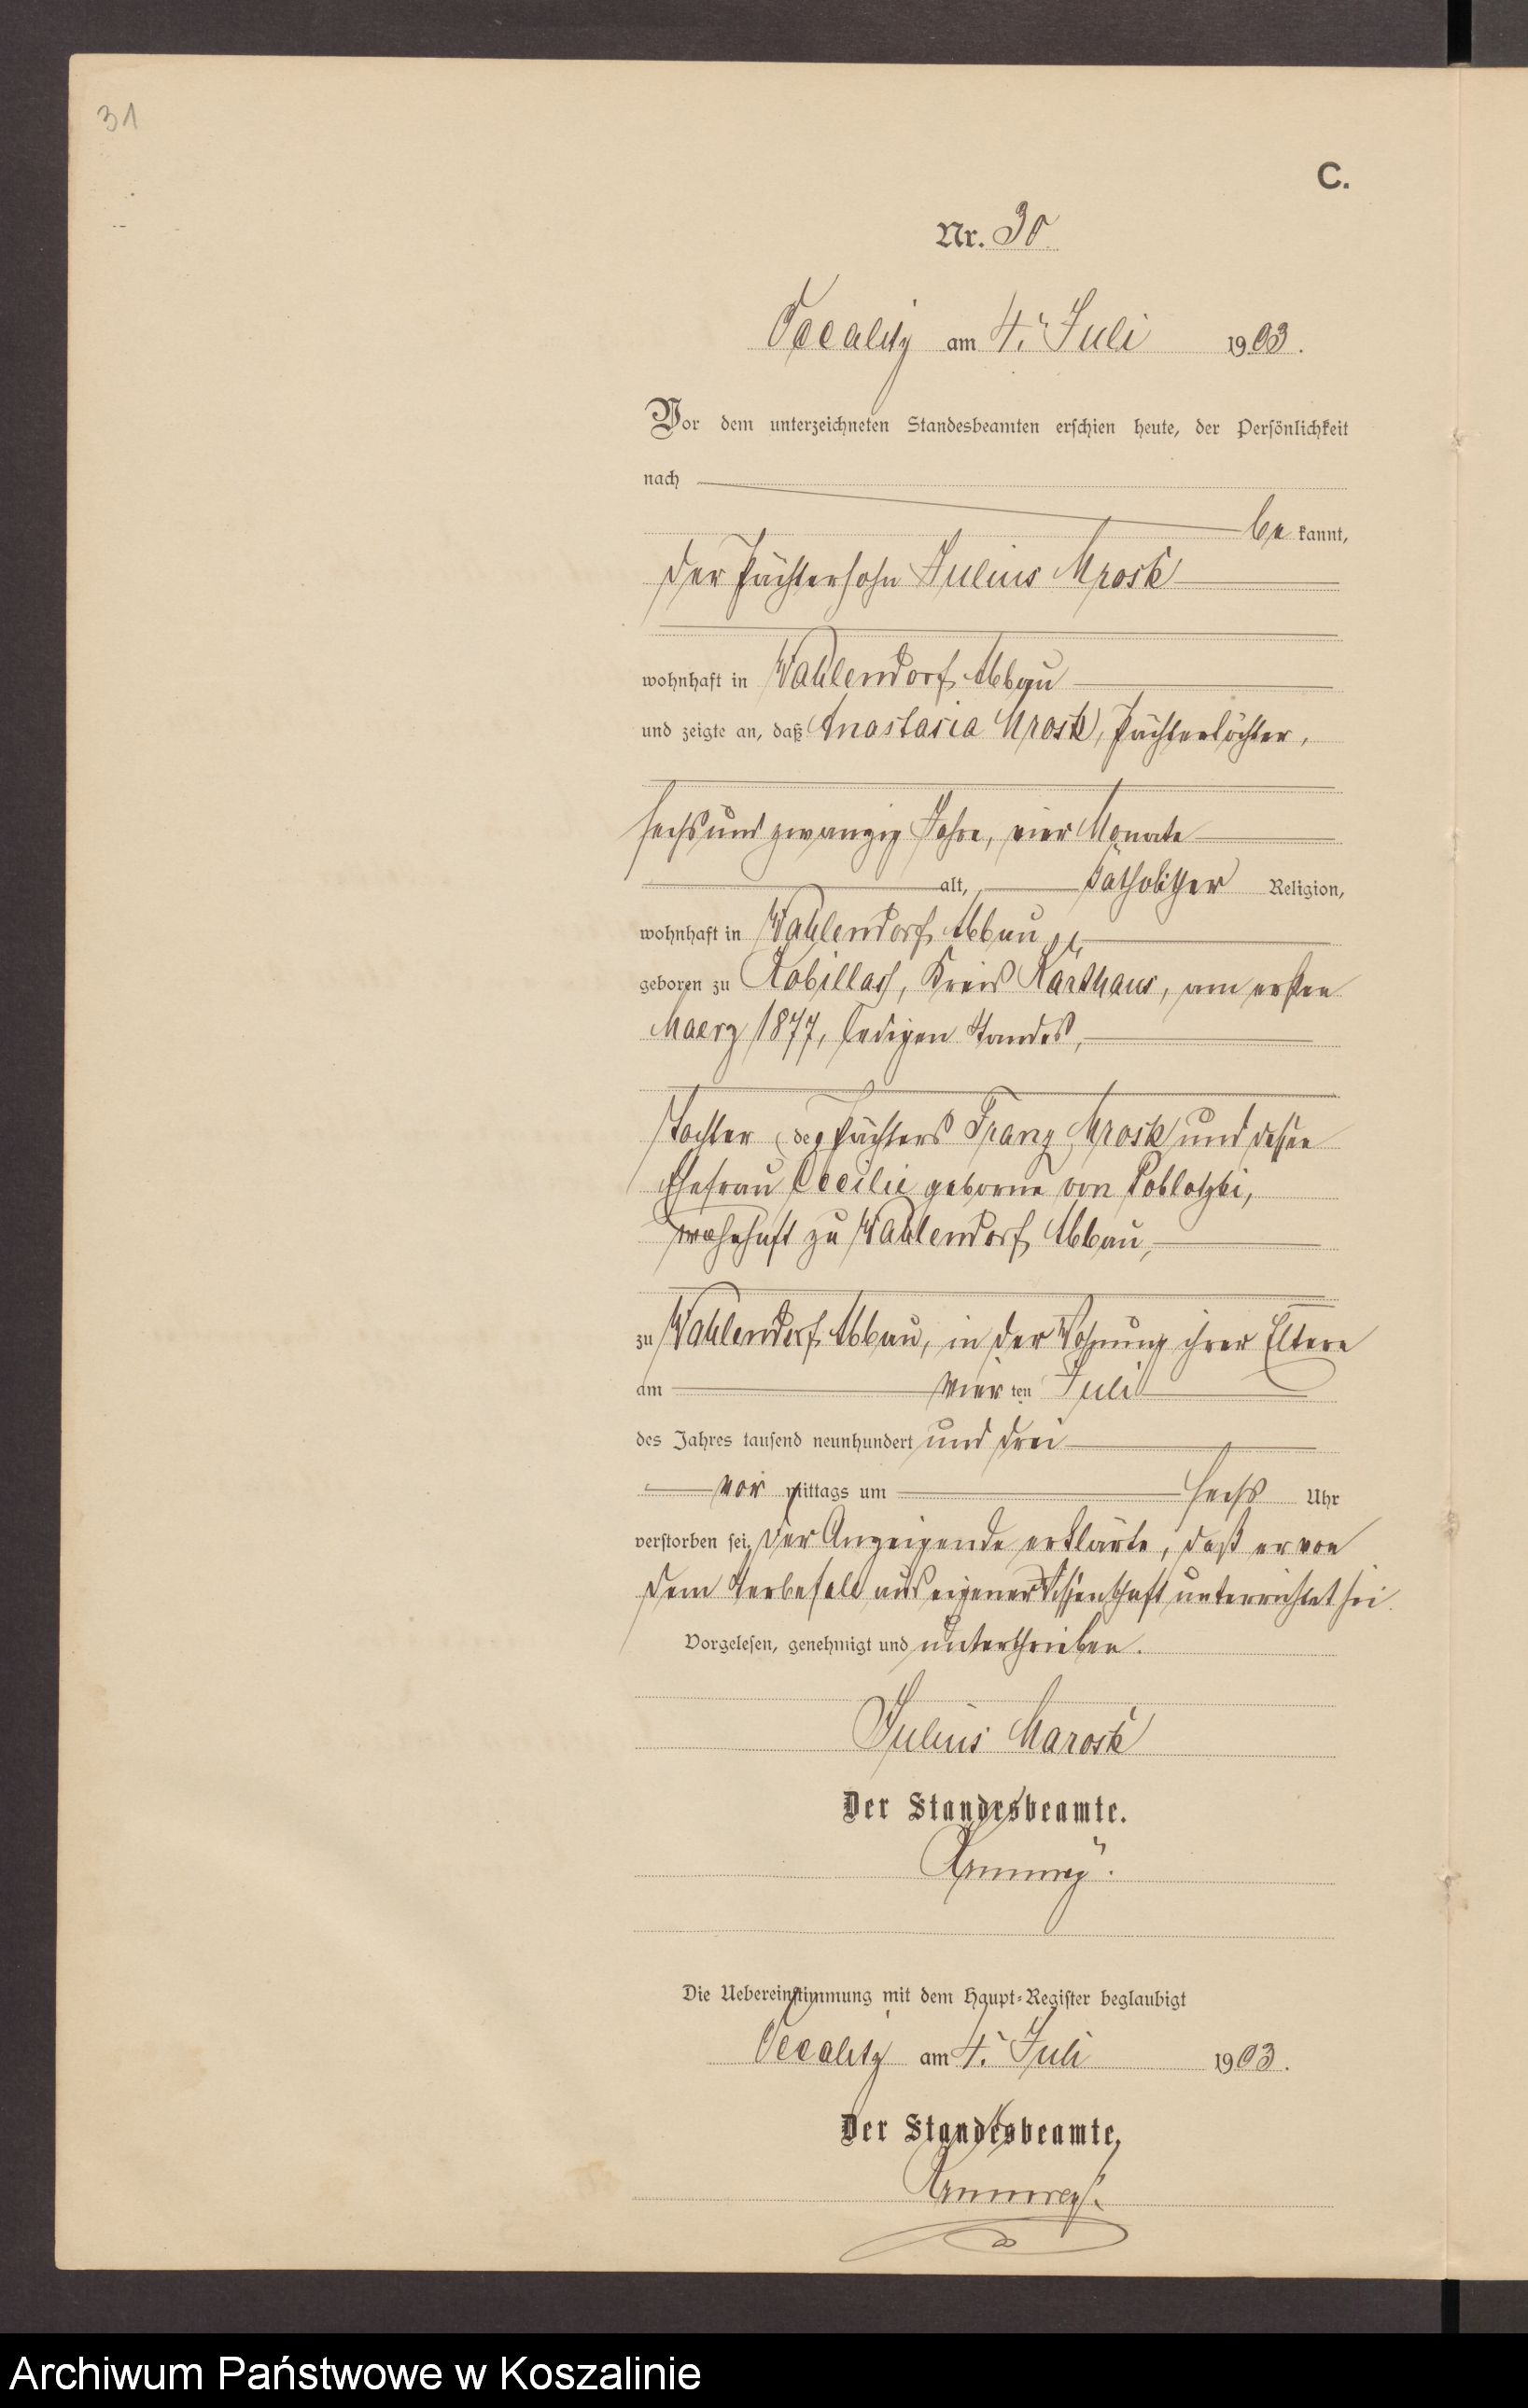 31
C.
Nr. 30.
Occalitz am 4. Juli 1903.
Vor dem unterzeichneten Standesbeamten erschien heute, der Persönlichkeit
nach
be kannt,
der Pächtersohn Julius Mrosk
wohnhaft in Wahlendorf Abbau
und zeigte an, daß Anastasia Mrosk, Pächtertochter,
sechsundzwanzig Jahre, vier Monate
alt, katholischer Religion,
wohnhaft in Wahlendorf Abbau
geboren zu Kobillas, Kreis Karthaus, am ersten
Maerz 1877, ledigen Standes,
Tochter des Pächters Franz Mrosk und dessen
Ehefrau Cecilie geborne von Poblotzki,
wohnhaft zu Wahlendorf Abbau,
zu Wahlendorf Abbau, in der Wohnung ihrer Eltern
am vier ten Juli
des Jahres tausend neunhundert und drei
vor mittags um sechs Uhr
verstorben sei. Der Anzeigende erklärte, daß er von
dem Sterbefall aus eigener Wissenschaft unterrichtet sei.
Vorgelesen, genehmigt und unterschrieben.
Julius Marosk
Der Standesbeamte.
Die Uebereinstimmung mit dem Haupt-Register beglaubigt
Occalitz am 4. Juli 1903.
Der Standesbeamte,
Archiwum Państwowe w Koszalinie